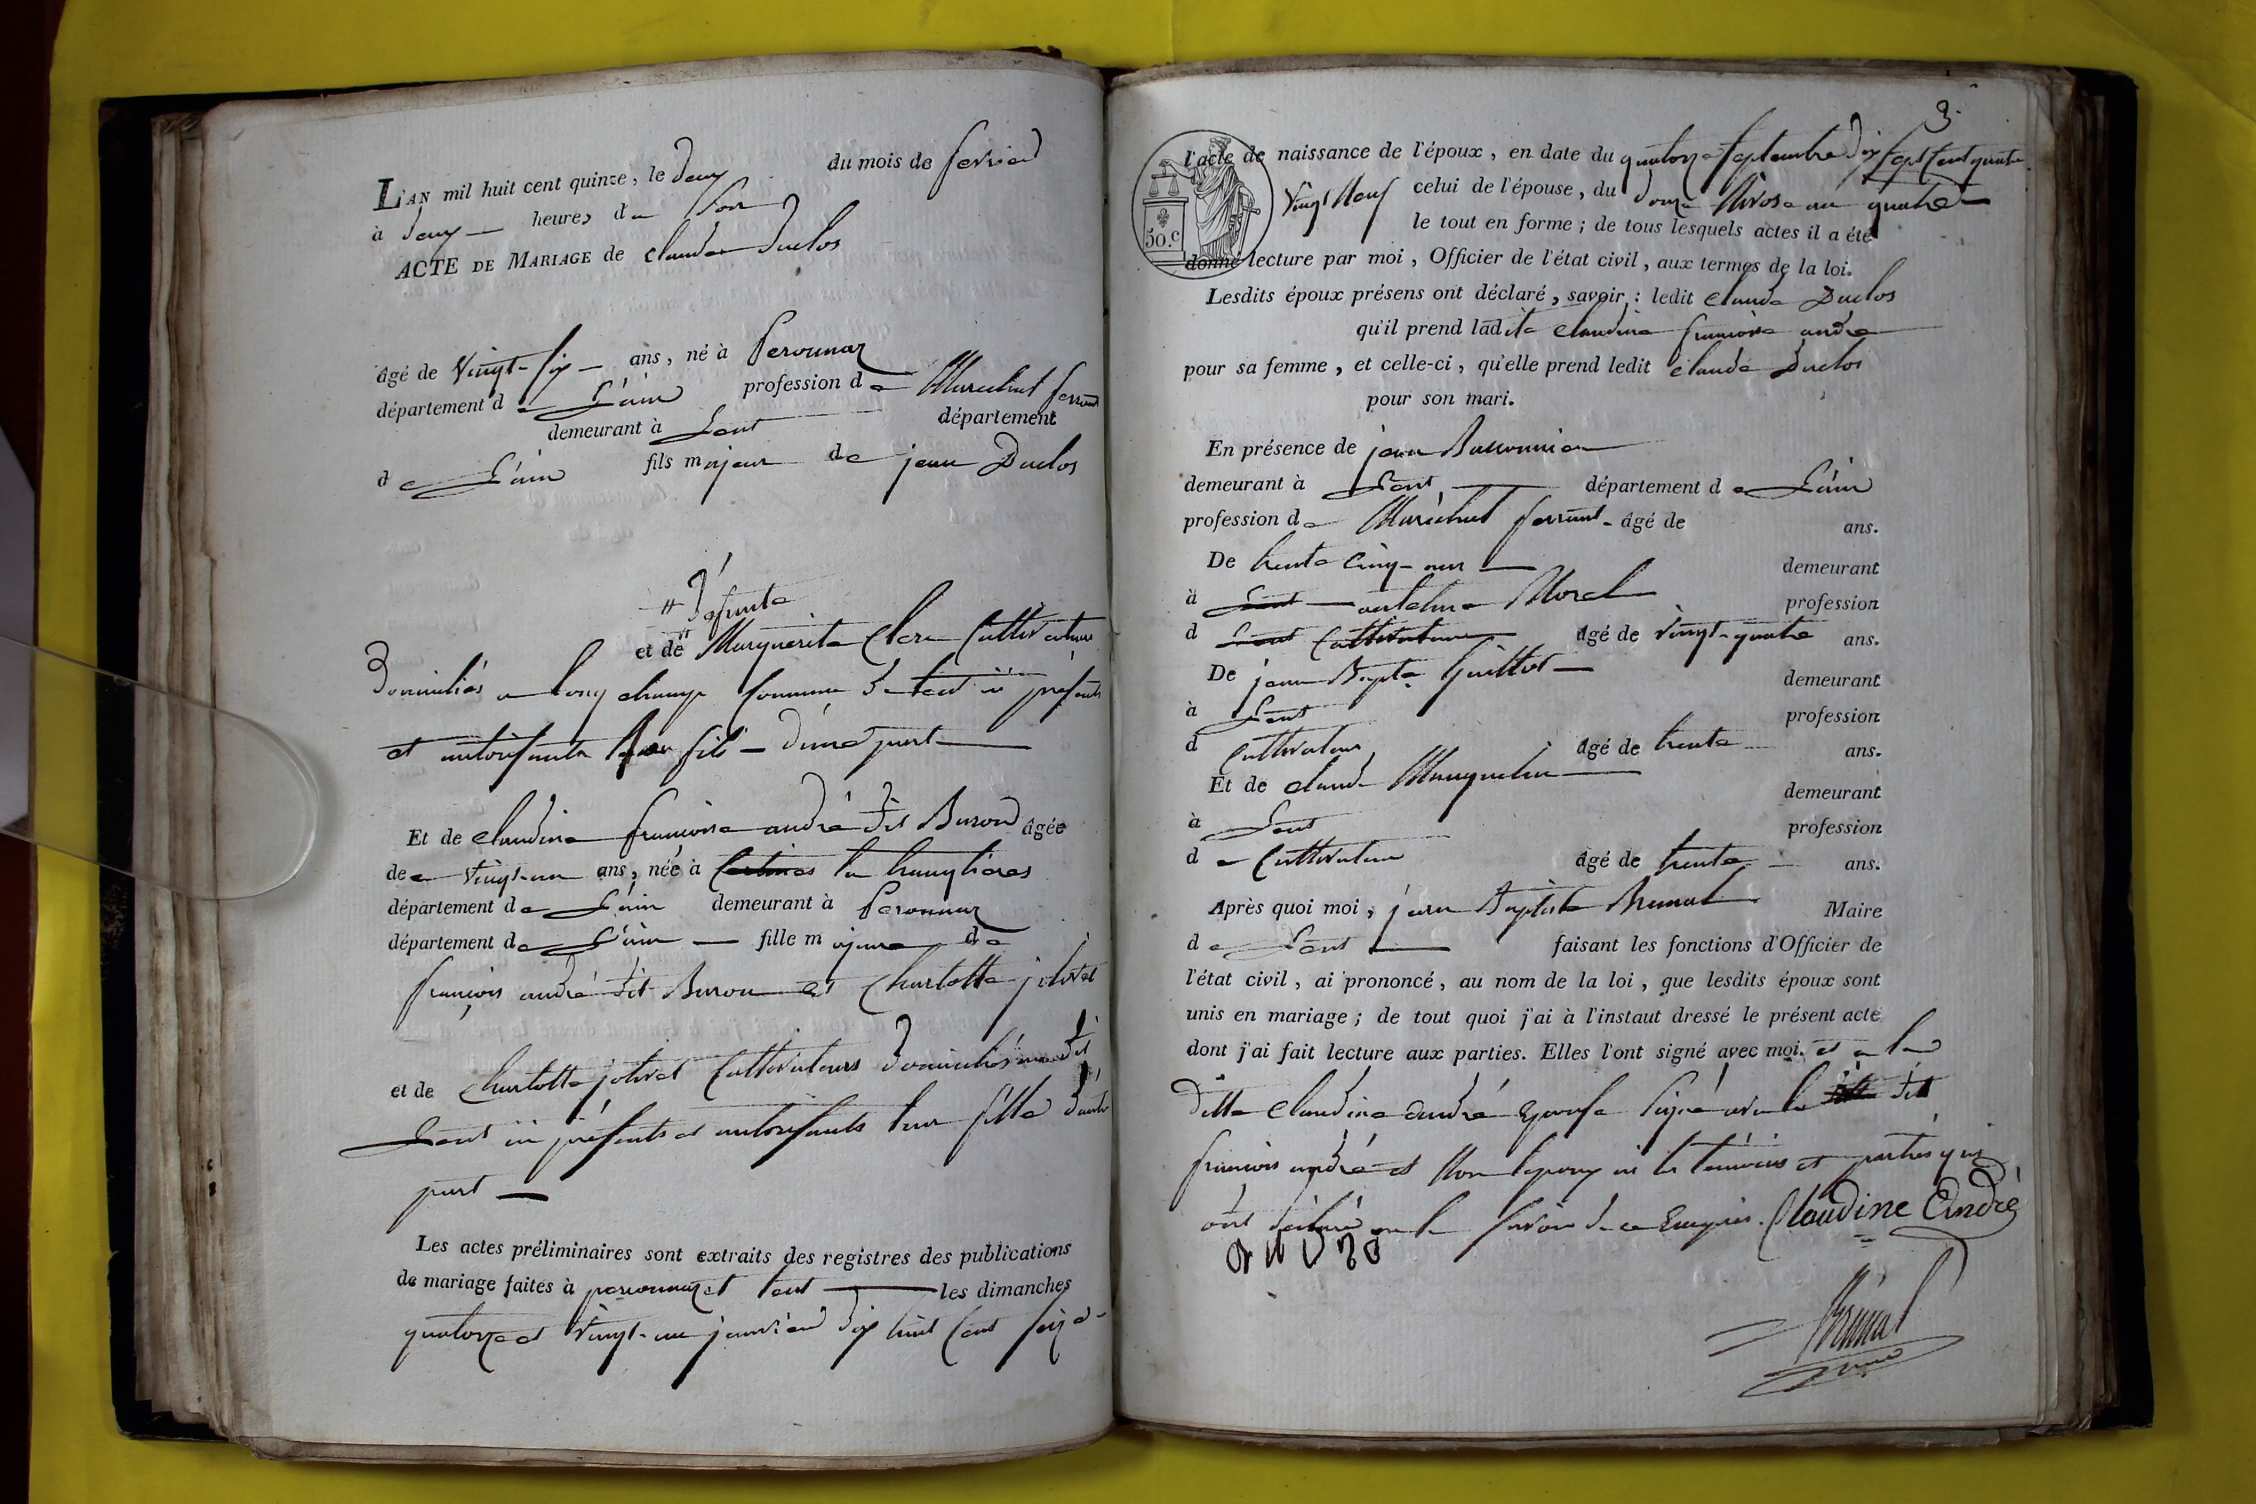 L'AN mil huit cent quinze, le deux du mois de fevrier
à deux heures du soir
ACTE DE MARIAGE de claude Duclos
âgé de vingt-six ans, né à Peronnaz
département de L'ain profession de Marechal ferrant
demeurant à Lent département
de L'ain fils majeur de jean Duclos
# Defunte
et de # Marguerite Clerc Cultivateurs
Domiciliés a long champ Commune de Lent ici présents
et autorisants leur fils d'une part
Et de claudine francoise andré dit Buron âgée
de vingt-un ans, née à la tranglières
département de L'ain demeurant à Peronnaz
département de L'ain fille majeure de
françois andré dit Buron et Charlotte jolivet
et de Charlotte jolivet Cultivateurs Domiciliés dit
Lent ici présents et autorisants leur fille d'autre
part
Les actes préliminaires sont extraits des registres des publications
de mariage faites à peronnaz et Lent les dimanches
quatorze et vingt-un janvier dix huit cent seize
3.
l'acte de naissance de l'époux, en date du quatorze septembre dix sept cent quatre
vingt neuf celui de l'épouse, du douze Nivose an quatre
le tout en forme; de tous lesquels actes il a été
50.c
donné lecture par moi, Officier de l'état civil, aux termes de la loi.
Lesdits époux présens ont déclaré, savoir: ledit claude Duclos
qu'il prend ladite claudine francoise andre
pour sa femme, et celle-ci, qu'elle prend ledit claude Duclos
pour son mari.
En présence de jean
demeurant à Lent département de L'ain
profession de Maréchal ferrant âgé de ans.
De trente cinq ans demeurant
à Lent antelme Morel profession
d Lent Cultivateur âgé de vingt-quatre ans.
De jean Bapte Guillot demeurant
à Lent profession
d Cultivateur âgé de trente ans.
Et de claude Manguelin demeurant
à Lent profession
de Cultivateur âgé de trente ans.
Après quoi moi, jean Baptiste Brunal Maire
de Lent faisant les fonctions d'Officier de
l'état civil, ai prononcé, au nom de la loi, que lesdits époux sont
unis en mariage; de tout quoi j'ai à l'instaut dressé le présent acte
dont j'ai fait lecture aux parties. Elles l'ont signé avec moi. et a la
ditte claudine andré Epouse signé avec le dit
francois andré et Non lepoux ni les témoins et parties qui
ont déclaré ne le savoir de ce Enquis. Claudine André